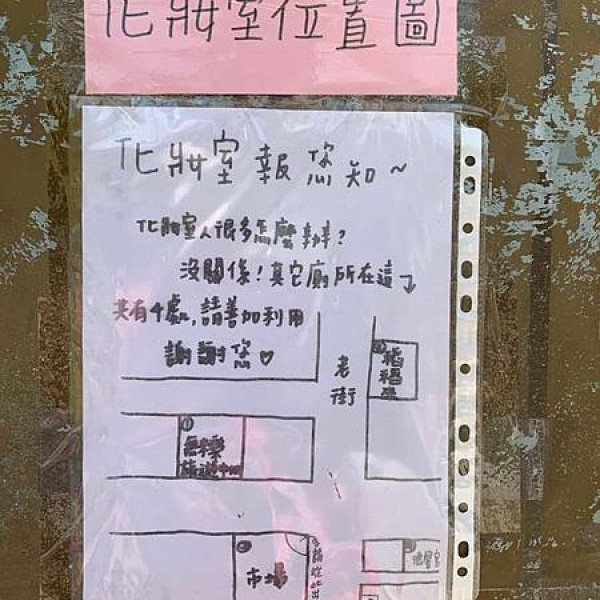 化妝室位置圖
化妝室報您知~
化妝室人很多怎麼辦?
沒關係!其它廁所在這
共有4處,請善加利用
謝謝您♡
老街
①
無米樂
旅遊中心
市場